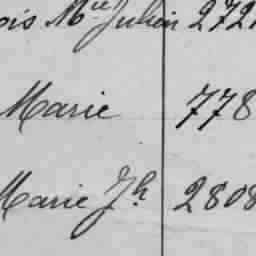 ois Mie Julien 272
Marie 778
Marie Jh 2808